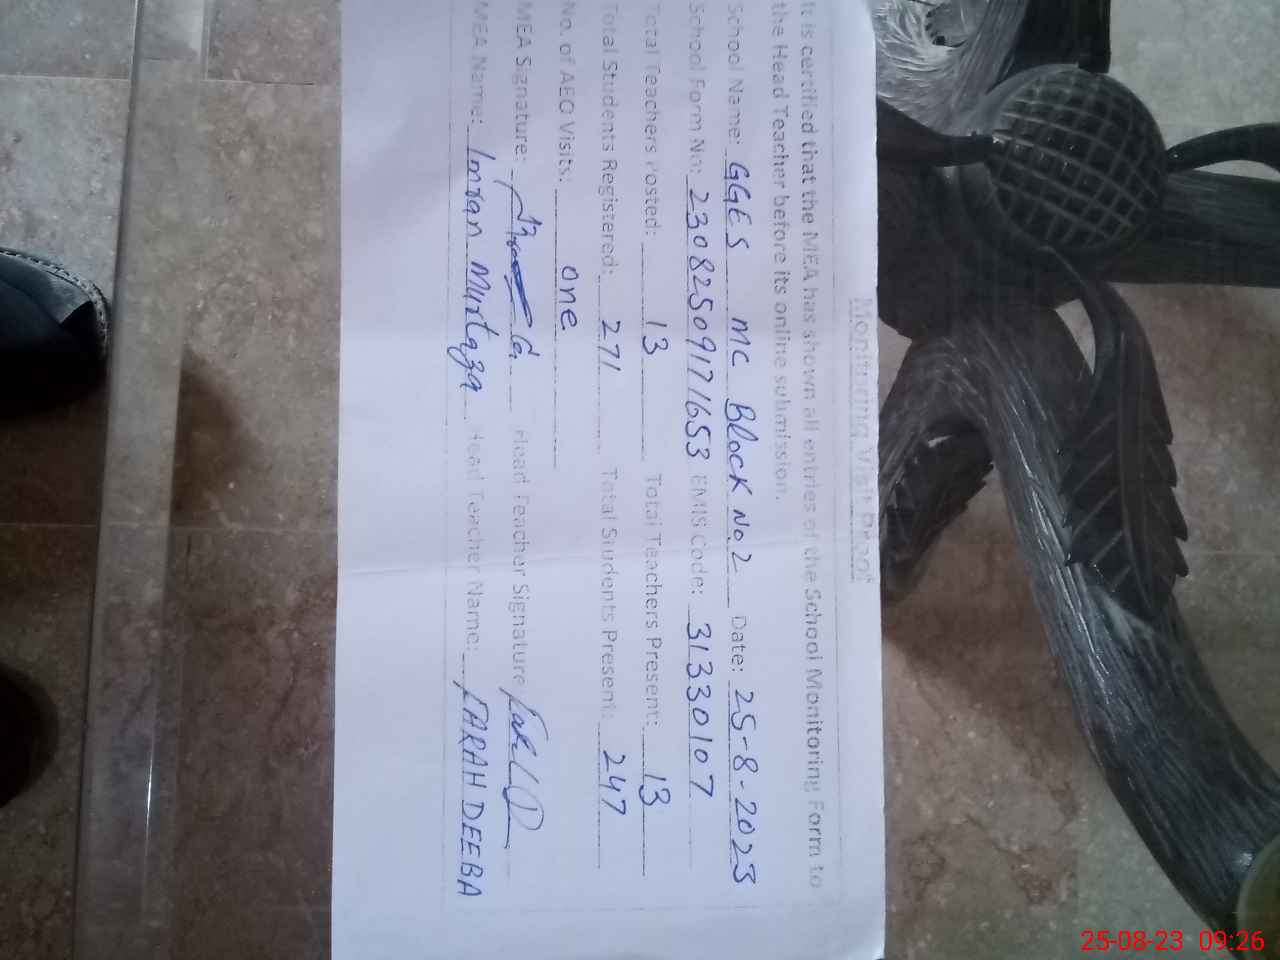 Monitoring Visit Proof
It is certified that the MEA has shown all entries of the School Monitoring Form to
the Head Teacher before its online submission.
School Name: GGES MC Block No.2 Date: 25-8-2023
School Form No: 23082509171653 EMIS Code: 31330107
Total Teachers Posted: 13 Total Teachers Present: 13
Total Students Registered: 271 Total Students Present: 247
No. of AEO Visits: one
MEA Signature: Head Teacher Signature
MEA Name: Imran Murtaza Head Teacher Name: FARAH DEEBA
25-08-23 09:26